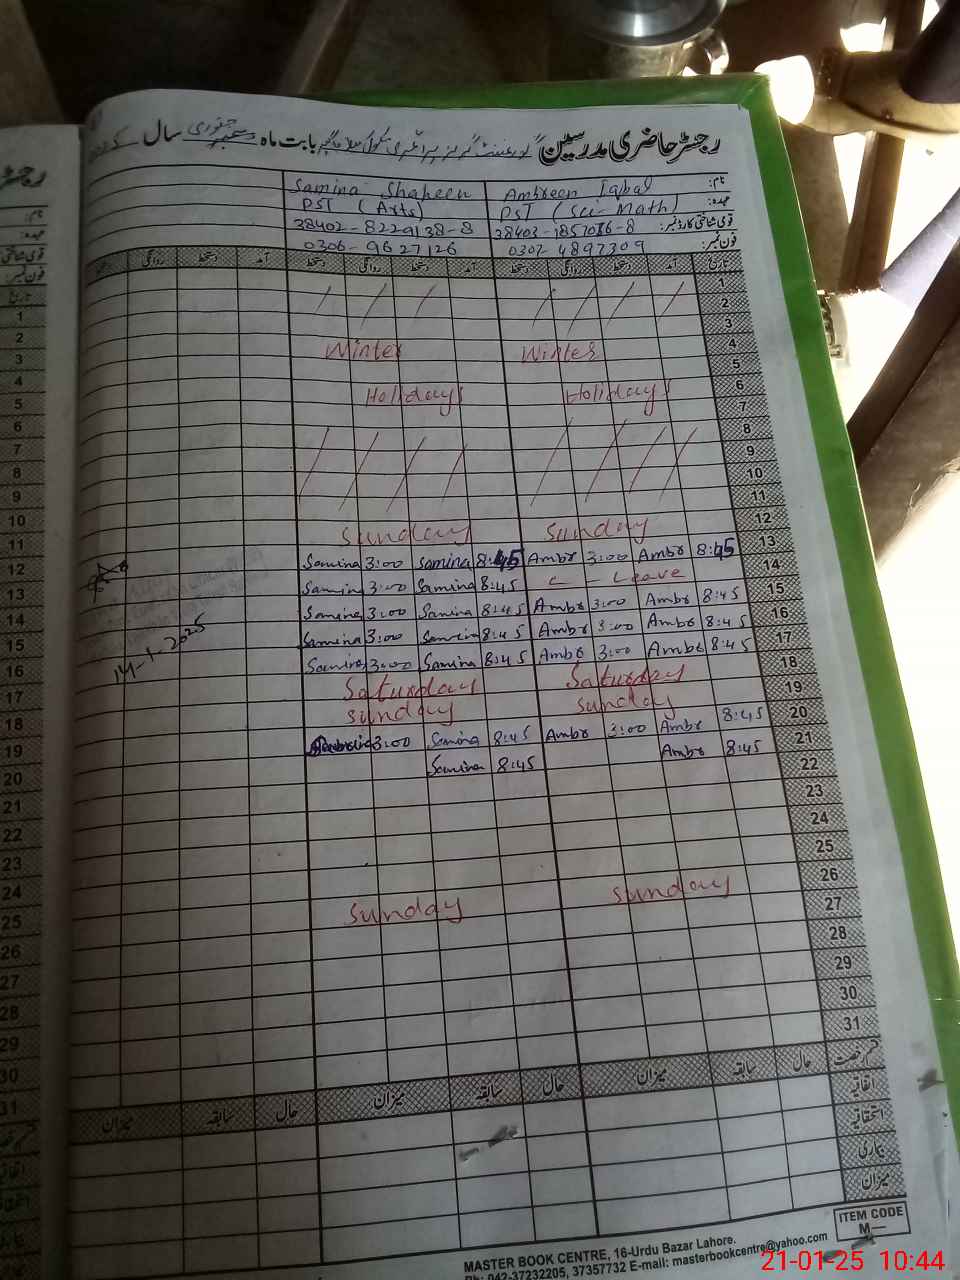 رجسٹر حاضری مدرسین گورنمنٹ گرلز پرائمری سکول بابت ماہ جنوری سال
نام: Ambreen Iqbal Samina Shaheen
عہدہ: PST (Sci-Math) PST (Arts)
قومی شناختی کارڈ نمبر: 38403-1857016-8 38402-8229138-8
فون نمبر: 0302-4897309 0306-9627126
تاریخ آمد دستخط روانگی دستخط آمد دستخط روانگی دستخط آمد دستخط روانگی دستخط
1
2
3
4 Winter Winter
5
6 Holidays Holidays
7
8
9
10
11
12 Sunday Sunday
13 Samina 3:00 Samina 8:45 Ambr 3:00 Ambr 8:45
14 Samina 3:00 Samina 8:45 C - Leave
15 Samina 3:00 Samina 8:45 Ambr 3:00 Ambr 8:45
16 Samina 3:00 Samina 8:45 Ambr 3:00 Ambr 8:45
17 Samina 3:00 Samina 8:45 Ambr 3:00 Ambr 8:45
18 Saturday Saturday
19 Sunday Sunday
20 3:00 Samina 8:45 Ambr 3:00 Ambr 8:45
21 Samina 8:45 Ambr 8:45
22
23
24
25
26 Sunday Sunday
27
28
29
30
31
14-1-2025
قسم رخصت حال سابقہ میزان حال سابقہ میزان حال سابقہ میزان
اتفاقیہ
استحقاقیہ
بیماری
میزان
ITEM CODE
M—
MASTER BOOK CENTRE, 16-Urdu Bazar Lahore.
Ph: 042-37232205, 37357732 E-mail: masterbookcentre@yahoo.com
21-01-25 10:44
رجسٹر
نام:
عہدہ:
قومی شناختی
فون نمبر:
تاریخ
1
2
3
4
5
6
7
8
9
10
11
12
13
14
15
16
17
18
19
20
21
22
23
24
25
26
27
28
29
30
31